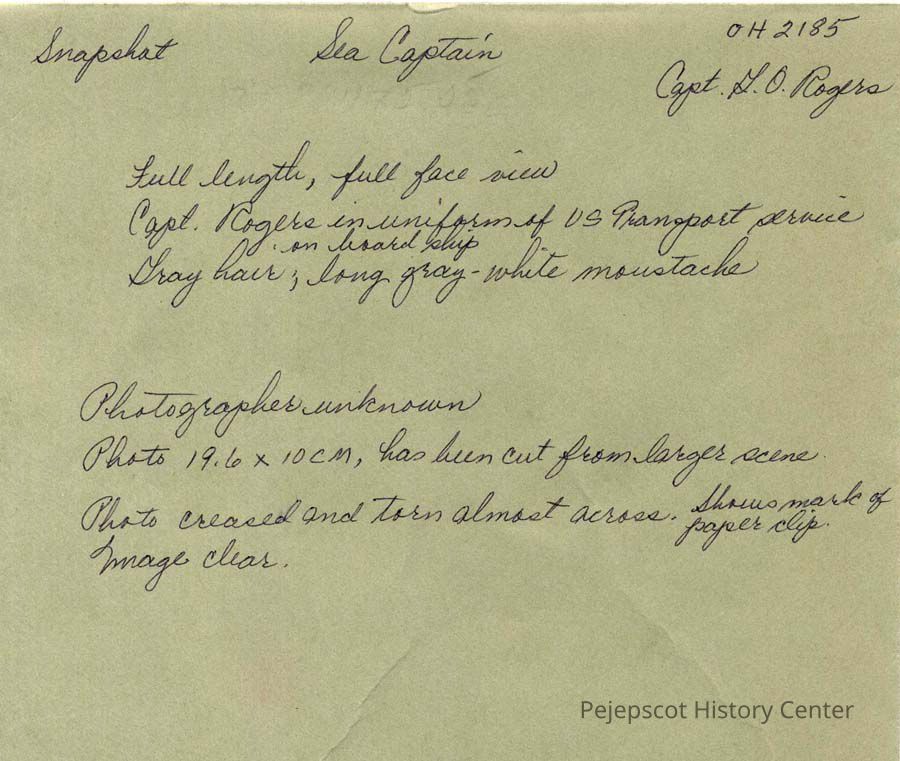 OH 2185
Snapshot Sea Captain
Capt. G. O. Rogers
Full length, full face view
Capt. Rogers in uniform of US Transport service
on board ship
Gray hair; long gray-white moustache
Photographer unknown
Photo 19.6 x 10 CM, has been cut from larger scene.
Photo creased and torn almost across. Shows mark of
paper clip.
Image clear.
Pejepscot History Center